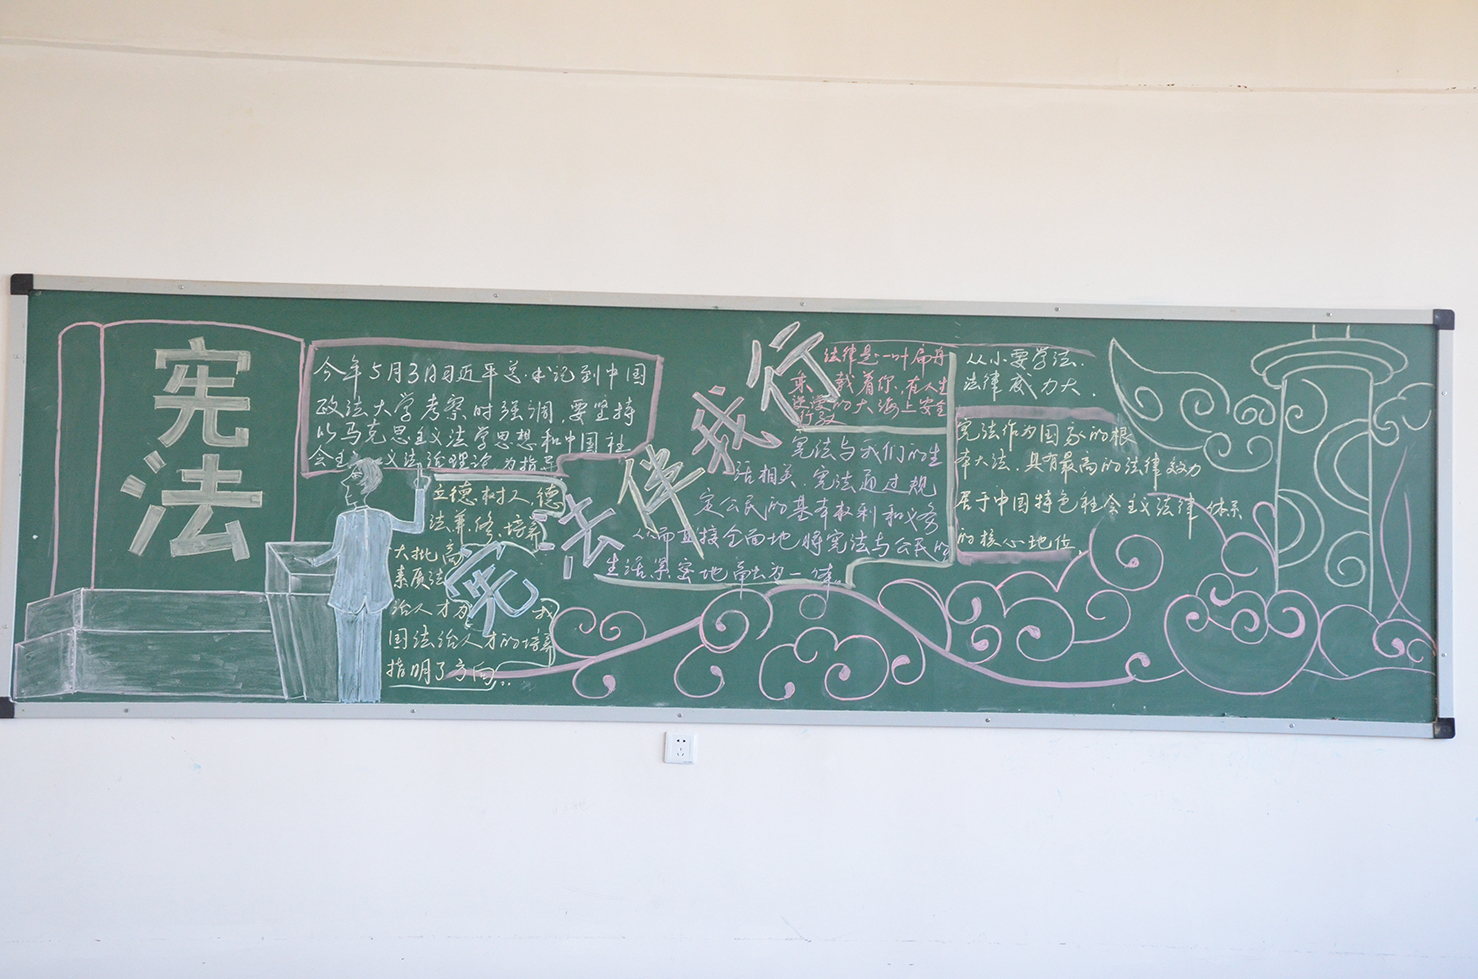 宪法
今年5月3日习近平总书记到中国
政法大学考察时强调,要坚持
以马克思主义法学思想和中国社
会主义法治理论为指导
立德树人,德
法兼修,培养
大批高
素质法
治人才为我
国法治人才的培养
指明了方向...
宪法伴我行
法律是一叶扁舟
乘载着你,有人生
的大海上安全
行驶
宪法与我们的生
活相关,宪法通过规
定公民的基本权利和义务
从而直接全面地将宪法与公民的
生活紧密地融为一体
从小要学法,
法律威力大.
宪法作为国家的根
本大法,具有最高的法律效力
居于中国特色社会主义法律体系
的核心地位,